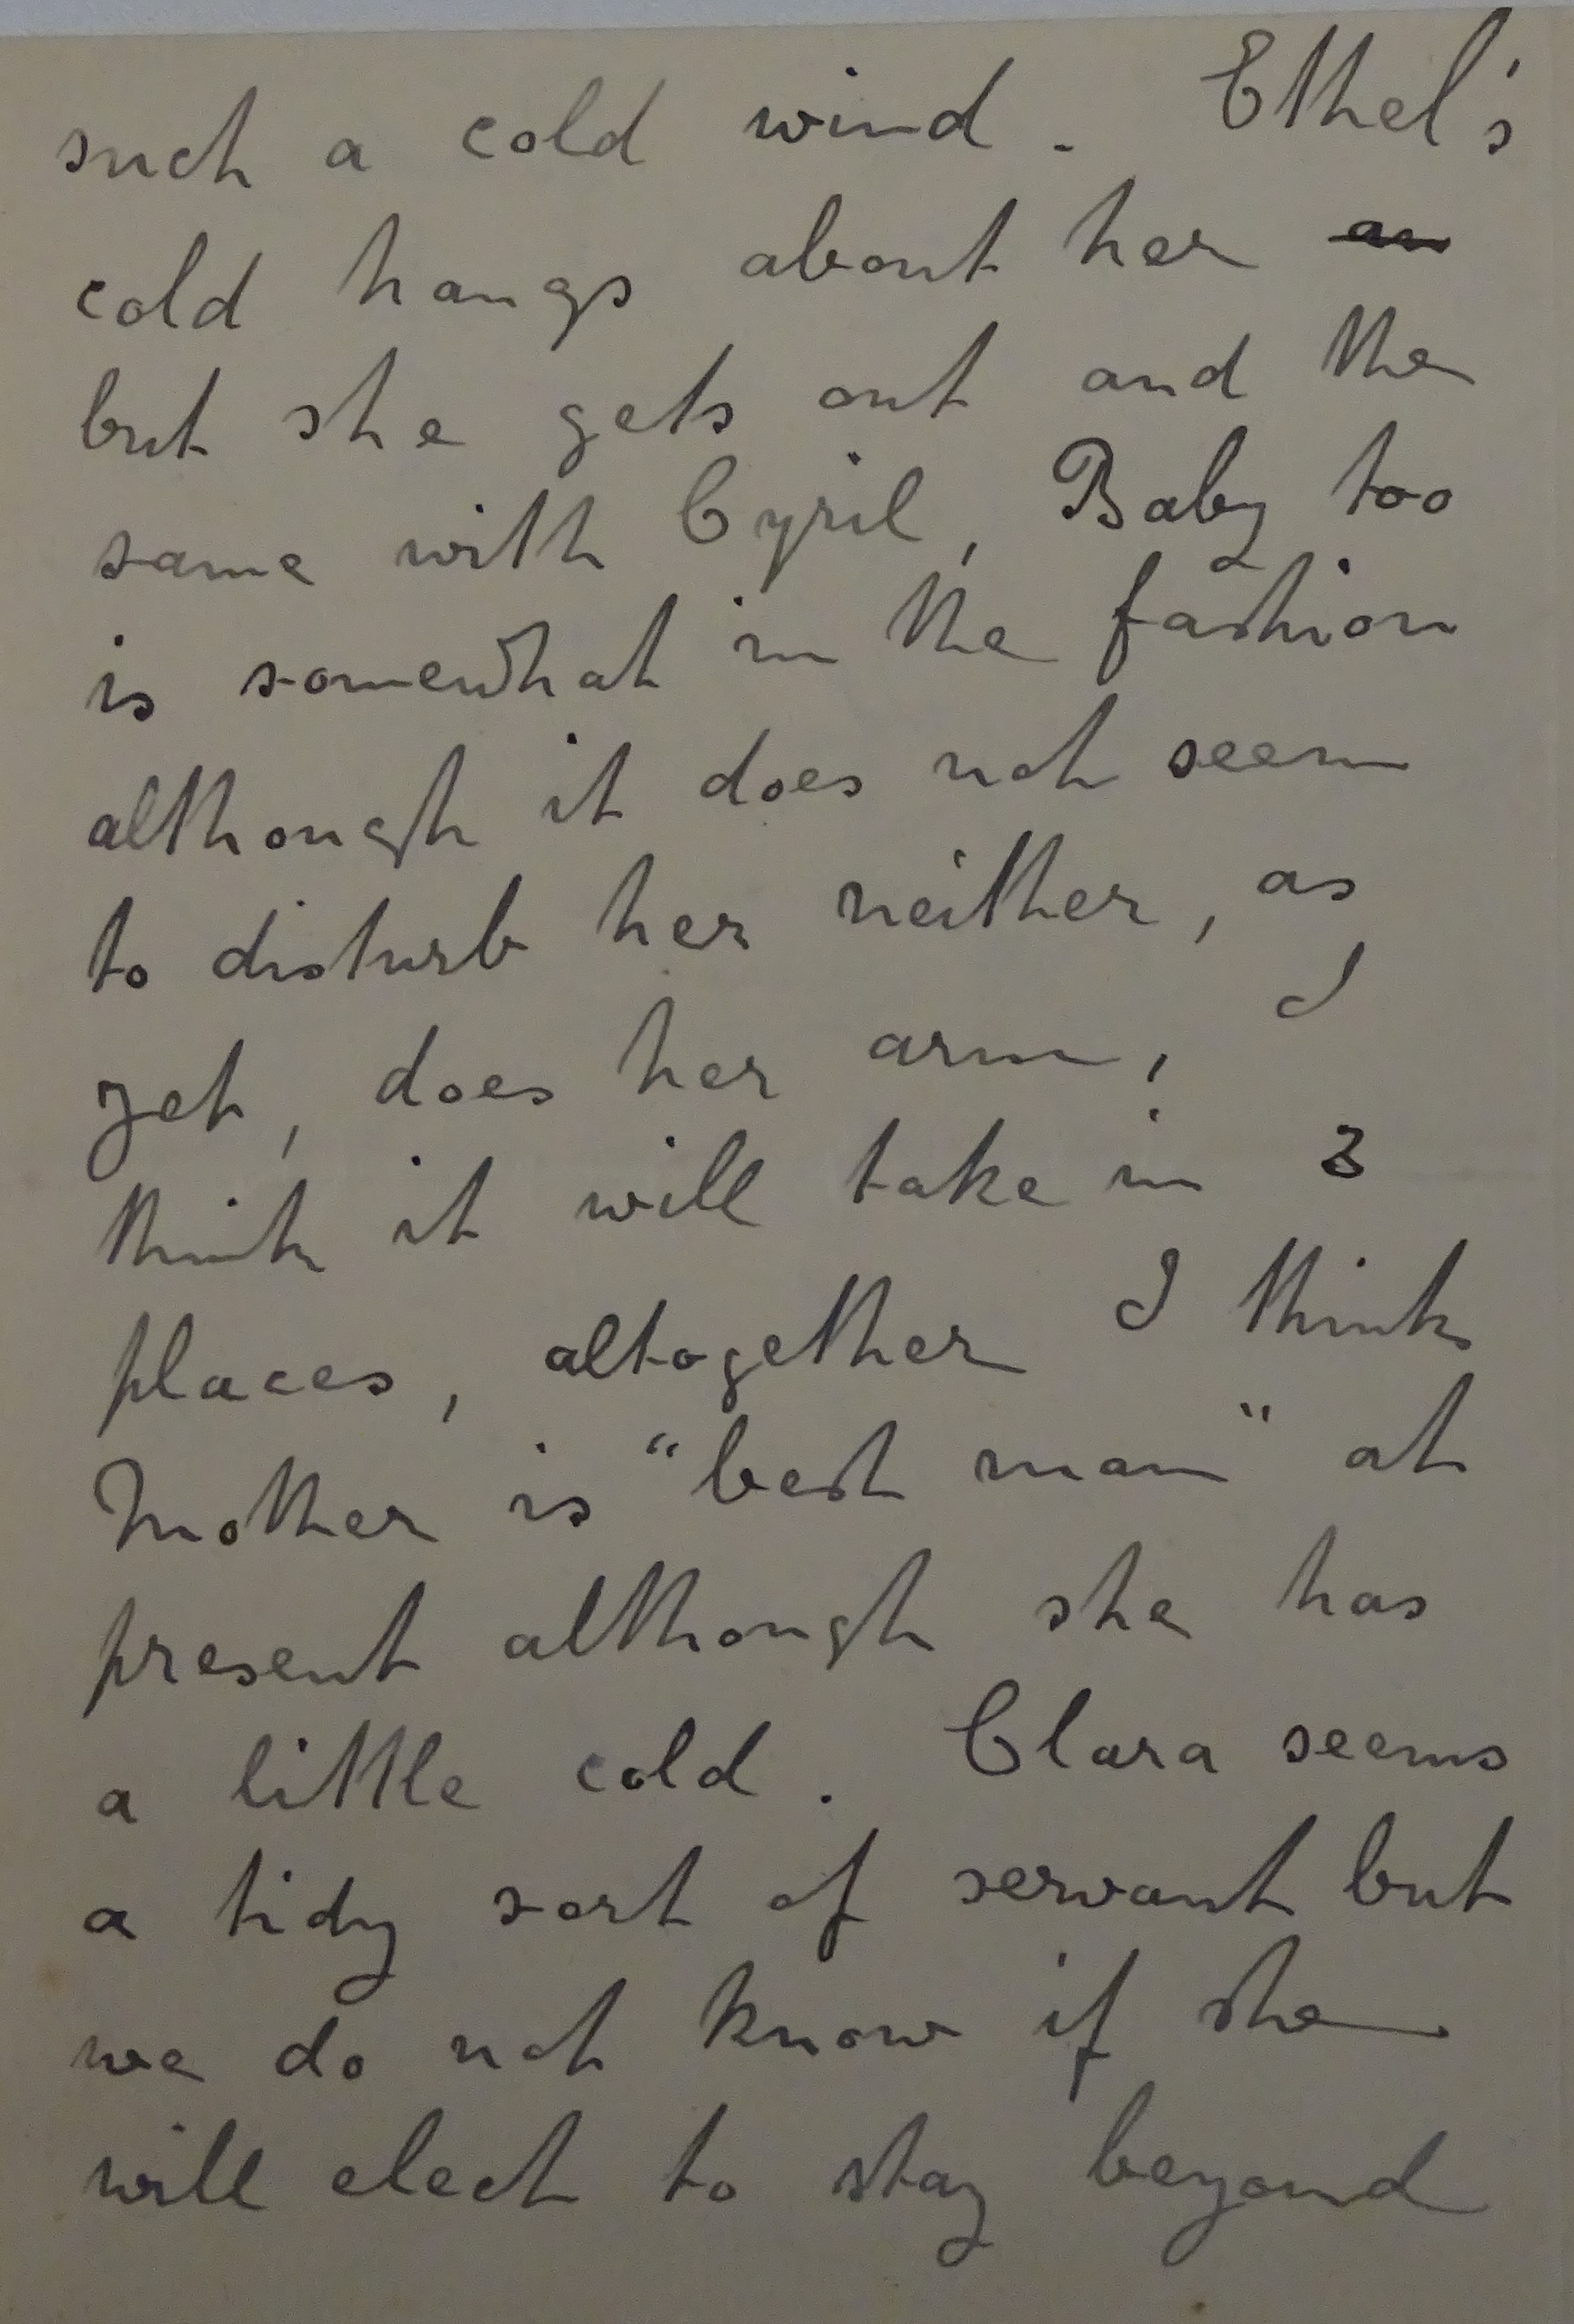 such a cold wind. Ethel's
cold hangs about her an
but she gets out and the
same with Cyril, Baby too
is somewhat in the fashion
although it does not seem
to disturb her neither, as
yet, does her arm, I
think it will take in 3
places, altogether I think
Mother is "best man" at
present although she has
a little cold. Clara seems
a tidy sort of servant but
we do not know if she
will elect to stay beyond